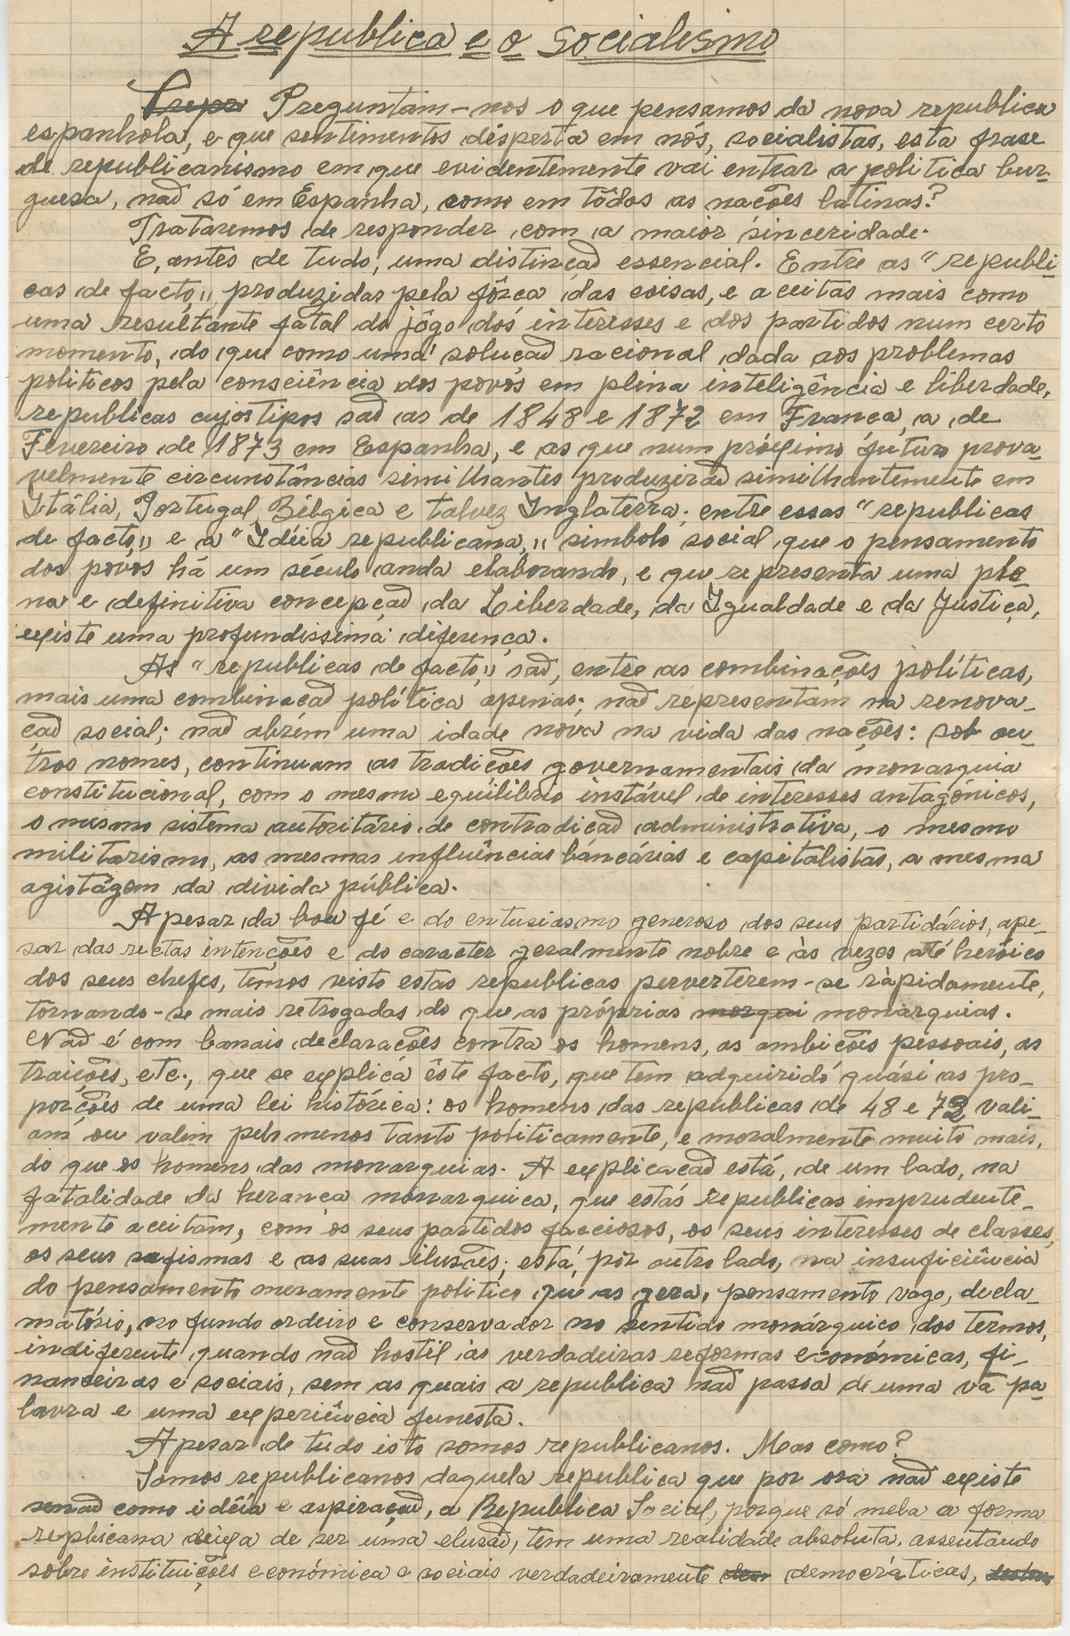 A republica e o socialismo
Preguntam-nos o que pensamos da nova republica
espanhola, e que sentimentos désperta em nós, socialistas, esta frase
de republicanismo em que evidentemente vai entrar a politica bur-
guesa, naõ só em Espanha, como em tôdos as naçoẽs latinas?
Trataremos de responder com a maior sinceridade.
E, antes de tudo, uma distincaõ essencial. Entre as "republi-
cas de facto,, produzidas pela fôrça das coisas, e aceitas mais como
uma resultante fatal do jôgo dos interêsses e dos partidos num certo
momento, do que como uma solucaõ racional dada aos problemas
politicos pela consciência dos povos em plina inteligência e liberdade,
republicas cujos tipos saõ as de 1848 e 1872 em Franca, a de
Fevereiro de 1873 em Espanha, e as que num próximo futuro prova-
velmente circunstâncias similhantes produziraõ similhantemente em
Itália, Portugal, Bélgica e talvez Inglaterra; entre essas "republicas
de facto,, e a "Idéia republicana,,, simbolo social que o pensamento
dos povos há um século anda elaborando, e que representa uma ple-
na e definitiva concepçaõ da Liberdade, da Igualdade e da Justiça,
existe uma profundissima diferença.
As "republicas de facto,, saõ, entre as combinaçoẽs políticas,
mais uma combinacaõ política apenas; naõ representam na renova-
çaõ social; naõ abrém uma idade nova na vida das naçoẽs: sob ou-
tros nomes, continuam as tradicoẽs governamentais da monarquia
constitucional, com o mesmo equilibrio instável de interesses antagónicos,
o mesmo sistema autoritário de contradicaõ administrativa, o mesmo
militarismo, as mesmas influências bancárias e capitalistas, a mesma
agiotágem da divida pública.
Apesar da boa fé e do entusiasmo generoso dos seus partidários, ape-
sar das rectas intençoẽs e do caracter geralmente nobre e às vezes até heróico
dos seus chefes, temos visto estas republicas perverterem-se ràpidamente,
tornando-se mais retrogadas do que as próprias monarquias.
Naõ é com banais declaracoẽs contra os homens, as ambicoẽs pessoais, as
traicoẽs, etc., que se explica êste facto, que tem adquirido quási as pro-
porcoẽs de uma lei histórica: os homens das republicas de 48 e 72 vali-
am ou valem pelo menos tanto politicamente, e moralmente muito mais,
do que os homens das monarquias. A explicacaõ está, de um lado, na
fatalidade da heranca monarquica, que estas republicas imprudente-
mente aceitam, com os seus partidos facciosos, os seus interesses de classes,
os seus sofismas e as suas ilusoẽs; está, por outro lado, na insuficiência
do pensamento meramente politico que as gera, pensamento vago, decla-
matório, no fundo ordeiro e conservador no sentido monárquico dos termos,
indiferente, quando naõ hostil às verdadeiras reformas económicas, fi-
nanceiras e sociais, sem as quais a republica naõ passa de uma vã pa-
lavra e uma experiência funesta.
Apesar de tudo isto somos republicanos. Mas como?
Somos republicanos daquela republica que por ora naõ existe
senaõ como idéia e aspiraçaõ, a Republica Social, porque só nela a forma
replicana deixa de ser uma elusaõ, tem uma realidade absoluta, assentando
sôbre instituiçoẽs económica e sociais verdadeiramente democráticas,